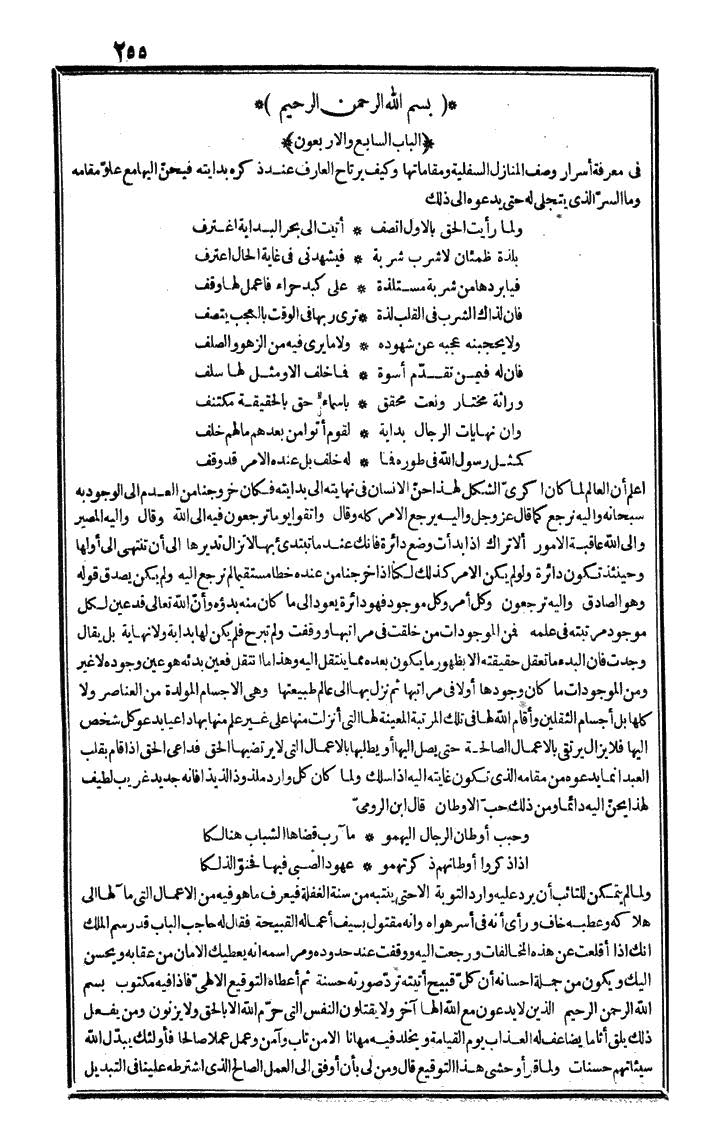 ٢٥٥
*( بسم الله الرحمن الرحيم )*
﴿الباب السابع والاربعون﴾
فى معرفة أسرار وصف المنازل السفلية ومقاماتها وكيف يرتاح العارف عند ذكره بدايته فيحنّ اليها مع علوّ مقامه
وما السرّ الذى يتجلى له حتى يدعوه الى ذلك
ولما رأيت الحق بالاول اتصف * أتيت الى بحر البداية اغترف
بلذة ظمئان لاشرب شربة * فيشهدنى فى غاية الحال اعترف
فيابردها من شربة مستلذة * على كبد حراء فاعمل لها وقف
فان لذاك الشرب فى القلب لذة * ترى ربها فى الوقت بالعجب يتصف
ولا يحجبنه عجبه عن شهوده * ولا ما يرى فيه من الزهو والصلف
فان له فيمن تقدّم أسوة * فاخلف الاومثل لها سلف
وراثة مختار ونعت محقق * باسماء حق بالحقيقة مكتنف
وان نهايات الرجال بداية * لقوم أتوا من بعدهم مالهم خلف
كمثل رسول الله فى طوره فما * له خلف بل عنده الامر قد وقف
اعلم أن العالم لما كان اكرىّ الشكل لهذا حنّ الانسان فى نهايته الى بدايته فكان خروجنا من العدم الى الوجود به
سبحانه واليه نرجع كما قال عز وجل واليه يرجع الامر كله وقال واتقوا يوما ترجعون فيه الى الله وقال واليه المصير
والى الله عاقبة الامور ألا تراك اذا بدأت وضع دائرة فانك عند ما تبتدئ بها لا تزال تديرها الى أن تنتهى الى أولها
وحينئذ تكون دائرة ولو لم يكن الامر كذلك لكنا اذا خرجنا من عنده خطا مستقيما لم نرجع اليه ولم يكن يصدق قوله
وهو الصادق واليه ترجعون وكل أمر وكل موجود فهو دائرة يعود الى ما كان منه بدؤه وأن الله تعالى قد عين لكل
موجود مرتبته فى علمه فمن الموجودات من خلقت فى مراتبها ووقفت ولم تبرح فلم يكن لها بداية ولا نهاية بل يقال
وجدت فان البدء ما تعقل حقيقته الا بظهور ما يكون بعده مما ينتقل اليه وهذا ما انتقل فعين بدئه هو عين وجوده لا غير
ومن الموجودات ما كان وجودها أولا فى مراتبها ثم نزل بها الى عالم طبيعتها وهى الاجسام المولدة من العناصر ولا
كلها بل أجسام الثقلين وأقام الله لها فى تلك المرتبة المعينة لها التى أنزلت منها على غير علم منها بها داعيا يدعو كل شخص
اليها فلا يزال يرتقى بالاعمال الصالحة حتى يصل اليها أو يطلبها بالاعمال التى لا يرتضيها الحق فداعى الحق اذا قام بقلب
العبد انما يدعوه من مقامه الذى تكون غايته اليه اذا سلك ولما كان كل وارد ملذوذا لذيذا فانه جديد غريب لطيف
لهذا يحنّ اليه دائما ومن ذلك حب الاوطان قال ابن الرومىّ
وحبب أوطان الرجال اليهمو * مآرب قضاها الشباب هنالكا
اذا ذكروا أوطانهم ذكرتهمو * عهود الصبى فيها فحنوا لذلكا
ولما لم يتمكن للتائب أن يرد عليه وارد التوبة الا حتى ينتبه من سنة الغفلة فيعرف ما هو فيه من الاعمال التى مآلها الى
هلاكه وعطبه خاف ورأى أنه فى أسر هواه وانه مقتول بسيف أعماله القبيحة فقال له حاجب الباب قد رسم الملك
انك اذا أقلعت عن هذه المخالفات ورجعت اليه ووقفت عند حدوده ومراسمه انه يعطيك الامان من عقابه ويحسن
اليك ويكون من جملة احسانه أن كل قبيح أتيته تردّ صورته حسنة ثم أعطاه التوقيع الالهىّ فاذا فيه مكتوب بسم
الله الرحمن الرحيم الذين لا يدعون مع الله الها آخر ولا يقتلون النفس التى حرّم الله الا بالحق ولا يزنون ومن يفعل
ذلك يلق أثاما يضاعف له العذاب يوم القيامة ويخلد فيه مهانا الا من تاب وآمن وعمل عملا صالحا فأولئك يبدّل الله
سيئاتهم حسنات ولما قرأ وحشى هذا التوقيع قال ومن لى بأن أوفق الى العمل الصالح الذى اشترطه علينا فى التبديل